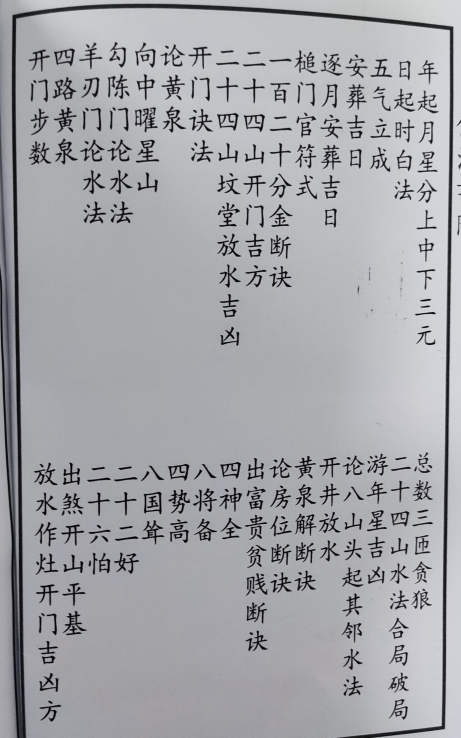 年起月星分上中下三元
日起时白法
五气立成
安葬吉日
逐月安葬吉日
槌门官符式
一百二十分金断诀
二十四山开门吉方
二十四山坟堂放水吉凶
开门诀法
论黄泉
向中曜星山
勾陈门论水法
羊刃门论水法
四路黄泉
开门步数
总数三匝贪狼
二十四山水法合局破局
游年星吉凶
论八山头起其邻水法
开井放水
黄泉解断诀
论房位断诀
出富贵贫贱断诀
四神全
八将备
四势高
八国耸
二十二好
二十六怕
出煞开山平基
放水作灶开门吉凶方